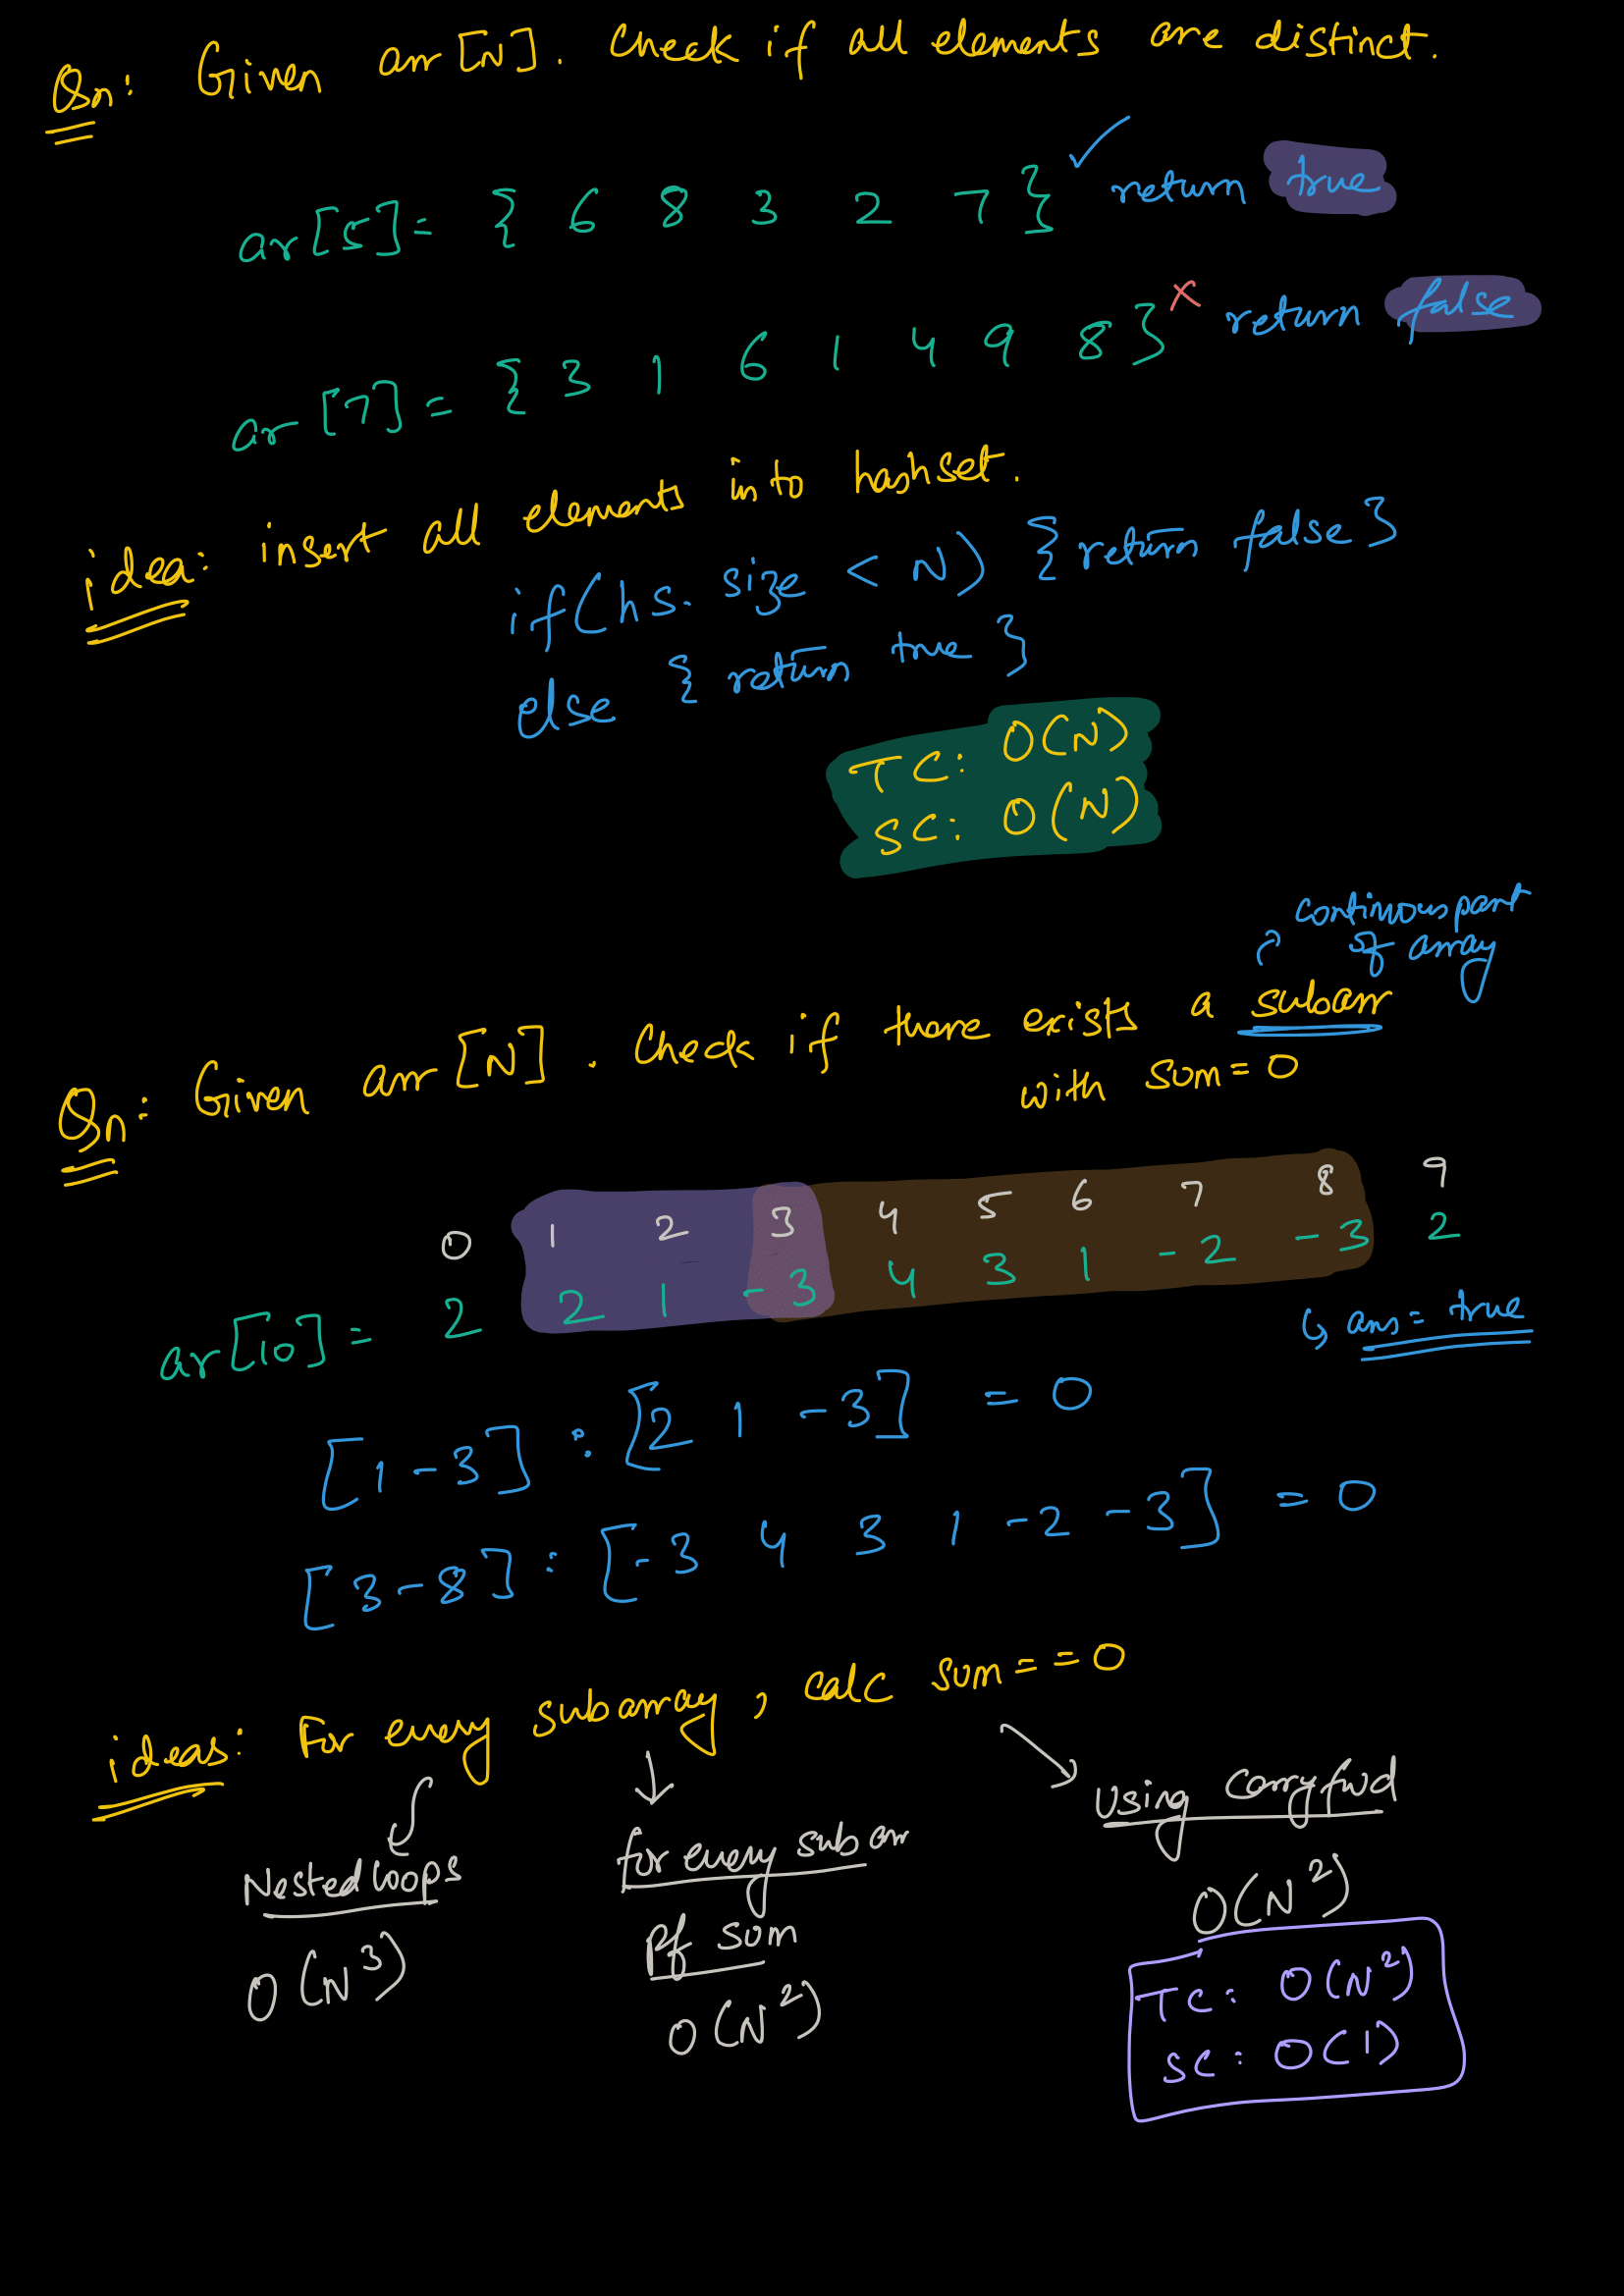 Qn: Given arr [N]. Check if all elements are distinct.
ar[5]= { 6 8 3 2 7 } return true
ar [7] = { 3 1 6 1 4 9 8 } x return false
idea: insert all elements into hashset.
if(hs. size < N) { return false }
else { return true }
TC: O(N)
SC: O(N)
continuous part
of array
Qn: Given arr [N]. Check if there exists a subarr
with sum=0
0 1 2 3 4 5 6 7 8 9
ar[10] = 2 2 1 -3 4 3 1 -2 -3 2
ans= true
[1-3] : [2 1 -3] = 0
[3-8] : [-3 4 3 1 -2 -3] = 0
ideas: For every subarray, calc sum==0
Nested loops
O(N³)
for every subarr
Pf sum
O(N²)
Using carry fwd
O(N²)
TC: O(N²)
SC: O(1)